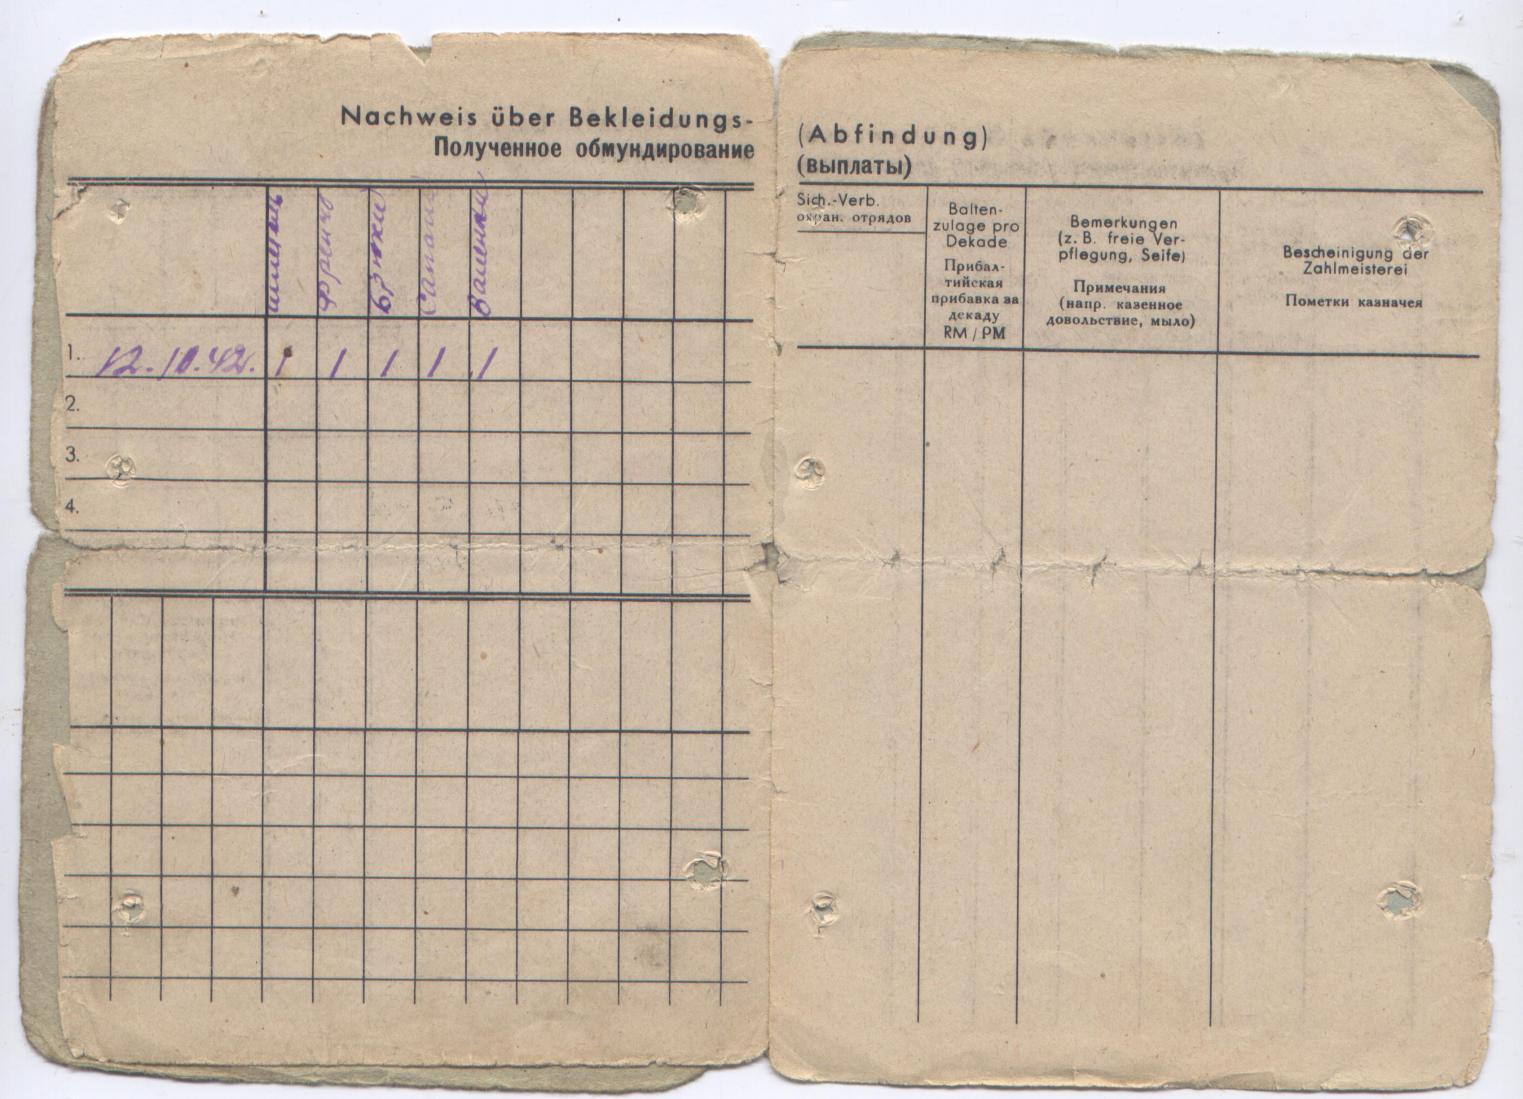 Nachweis über Bekleidungs-
Полученное обмундирование
шинель
френч
брюки
Сапоги
Валенки
1. 12.10.42. 1 1 1 1 1
2.
3.
4.
(Abfindung)
(выплаты)
Sich.-Verb.
охран. отрядов
Balten-
zulage pro
Dekade
Прибал-
тийская
прибавка за
декаду
RM / РМ
Bemerkungen
(z. B. freie Ver-
pflegung, Seife)
Примечания
(напр. казенное
довольствие, мыло)
Bescheinigung der
Zahlmeisterei
Пометки казначея